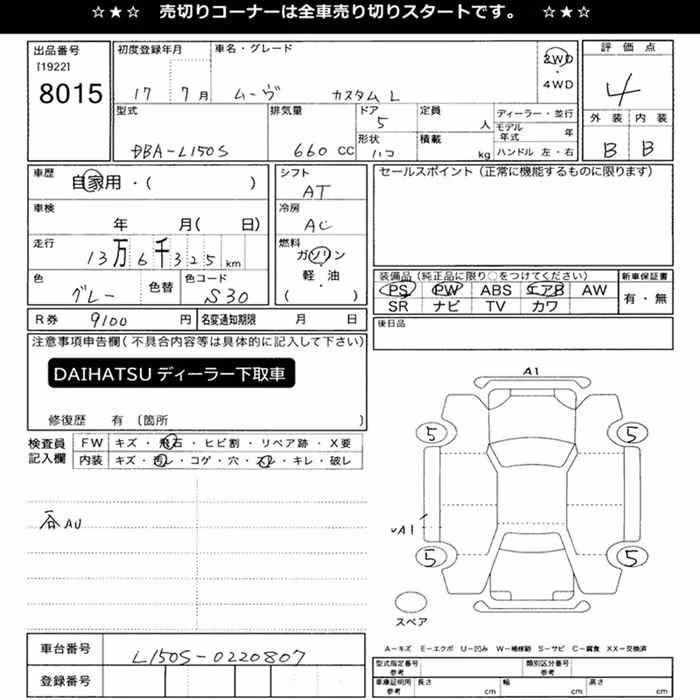 ☆★☆ 売切りコーナーは全車売り切りスタートです。 ☆★☆
出品番号
[1922]
8015
初度登録年月
17 7月
車名・グレード
ムーヴ カスタム L
2WD
・
4WD
評価点
4
外装 内装
B B
型式
DBA-L150S
排気量
660 CC
ドア
5
形状
ハコ
定員
人
積載
kg
ディーラー・並行
モデル年式 年
ハンドル 左・右
車歴
自家用・( )
車検
年 月( 日)
走行
13万6千325km
色
グレー
色替
色コード
S30
シフト
AT
冷房
AC
燃料
ガソリン
軽・油
( )
セールスポイント(正常に機能するものに限ります)
装備品(純正品に限り○をつけてください)
PS PW ABS エアB AW
SR ナビ TV カワ
新車保証書
有・無
後日品
R券 9100 円
名変通知期限 月 日
注意事項申告欄(不具合内容等は具体的に記入して下さい)
DAIHATSU ディーラー下取車
修復歴 有 〔箇所 〕
検査員
記入欄
FW キズ・飛石・ヒビ割・リペア跡・X要
内装 キズ・汚レ・コゲ・穴・スレ・キレ・破レ
各AU
A1
5
5
A1
5
5
スペア
車台番号
L150S-0220807
登録番号
A-キズ E-エクボ U-凹み W-補修跡 S-サビ C-腐食 XX-交換済
型式指定番号
参考
類別区分番号
参考
車庫証明用
参考
長さ cm
幅 cm
高さ cm